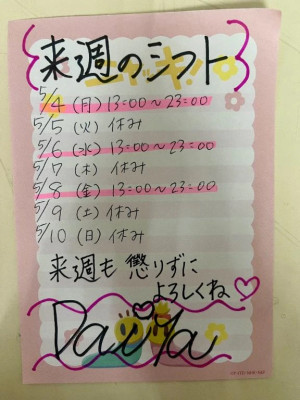 来週のシフト
5/4 (月) 13:00〜23:00
5/5 (火) 休み
5/6 (水) 13:00〜23:00
5/7 (木) 休み
5/8 (金) 13:00〜23:00
5/9 (土) 休み
5/10 (日) 休み
来週も 懲りずに
よろしくね♡